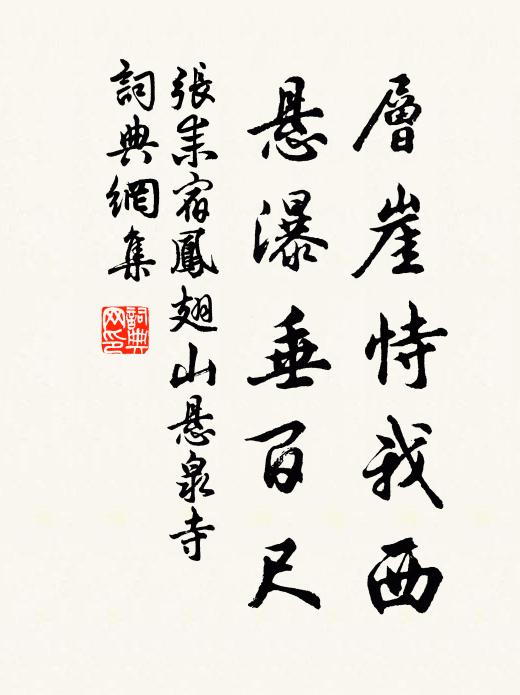 層崖恃我西
悬瀑垂百尺
張耒宿鳳翅山悬泉寺
詞典網集
詞典网印